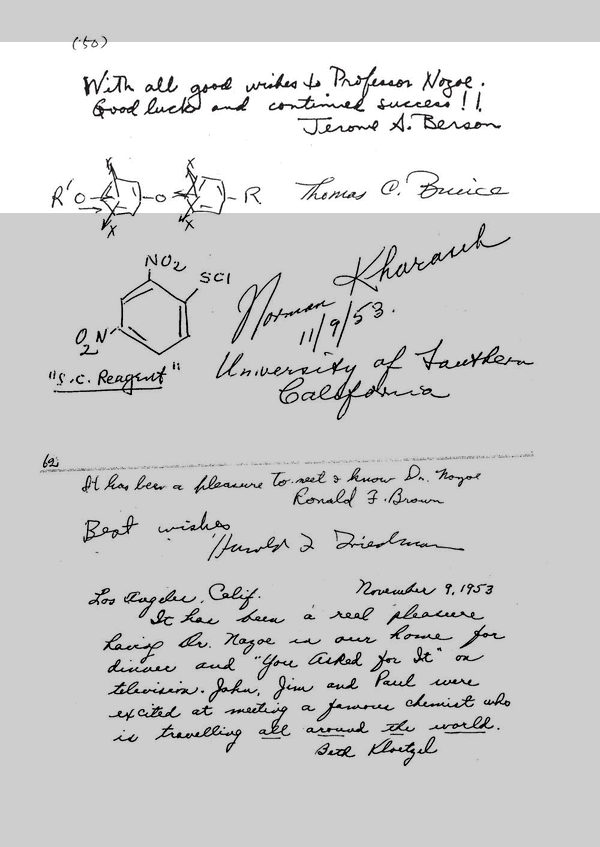 (50)
With all good wishes to Professor Nozoe.
Good luck and continued success!!
Jerome A. Berson
R'O X X O X X R Thomas C. Bruice
NO2
SCl
O2N
Norman Kharasch
11/9/53.
"S.C. Reagent"
University of Southern
California
62
It has been a pleasure to meet & know Dr. Nozoe
Ronald F. Brown
Best wishes
Harold L Friedman
Los Angeles, Calif. November 9, 1953
It has been a real pleasure
having Dr. Nozoe in our home for
dinner and "You Asked for It" on
television. John, Jim and Paul were
excited at meeting a famous chemist who
is travelling all around the world.
Beth Kloetzel